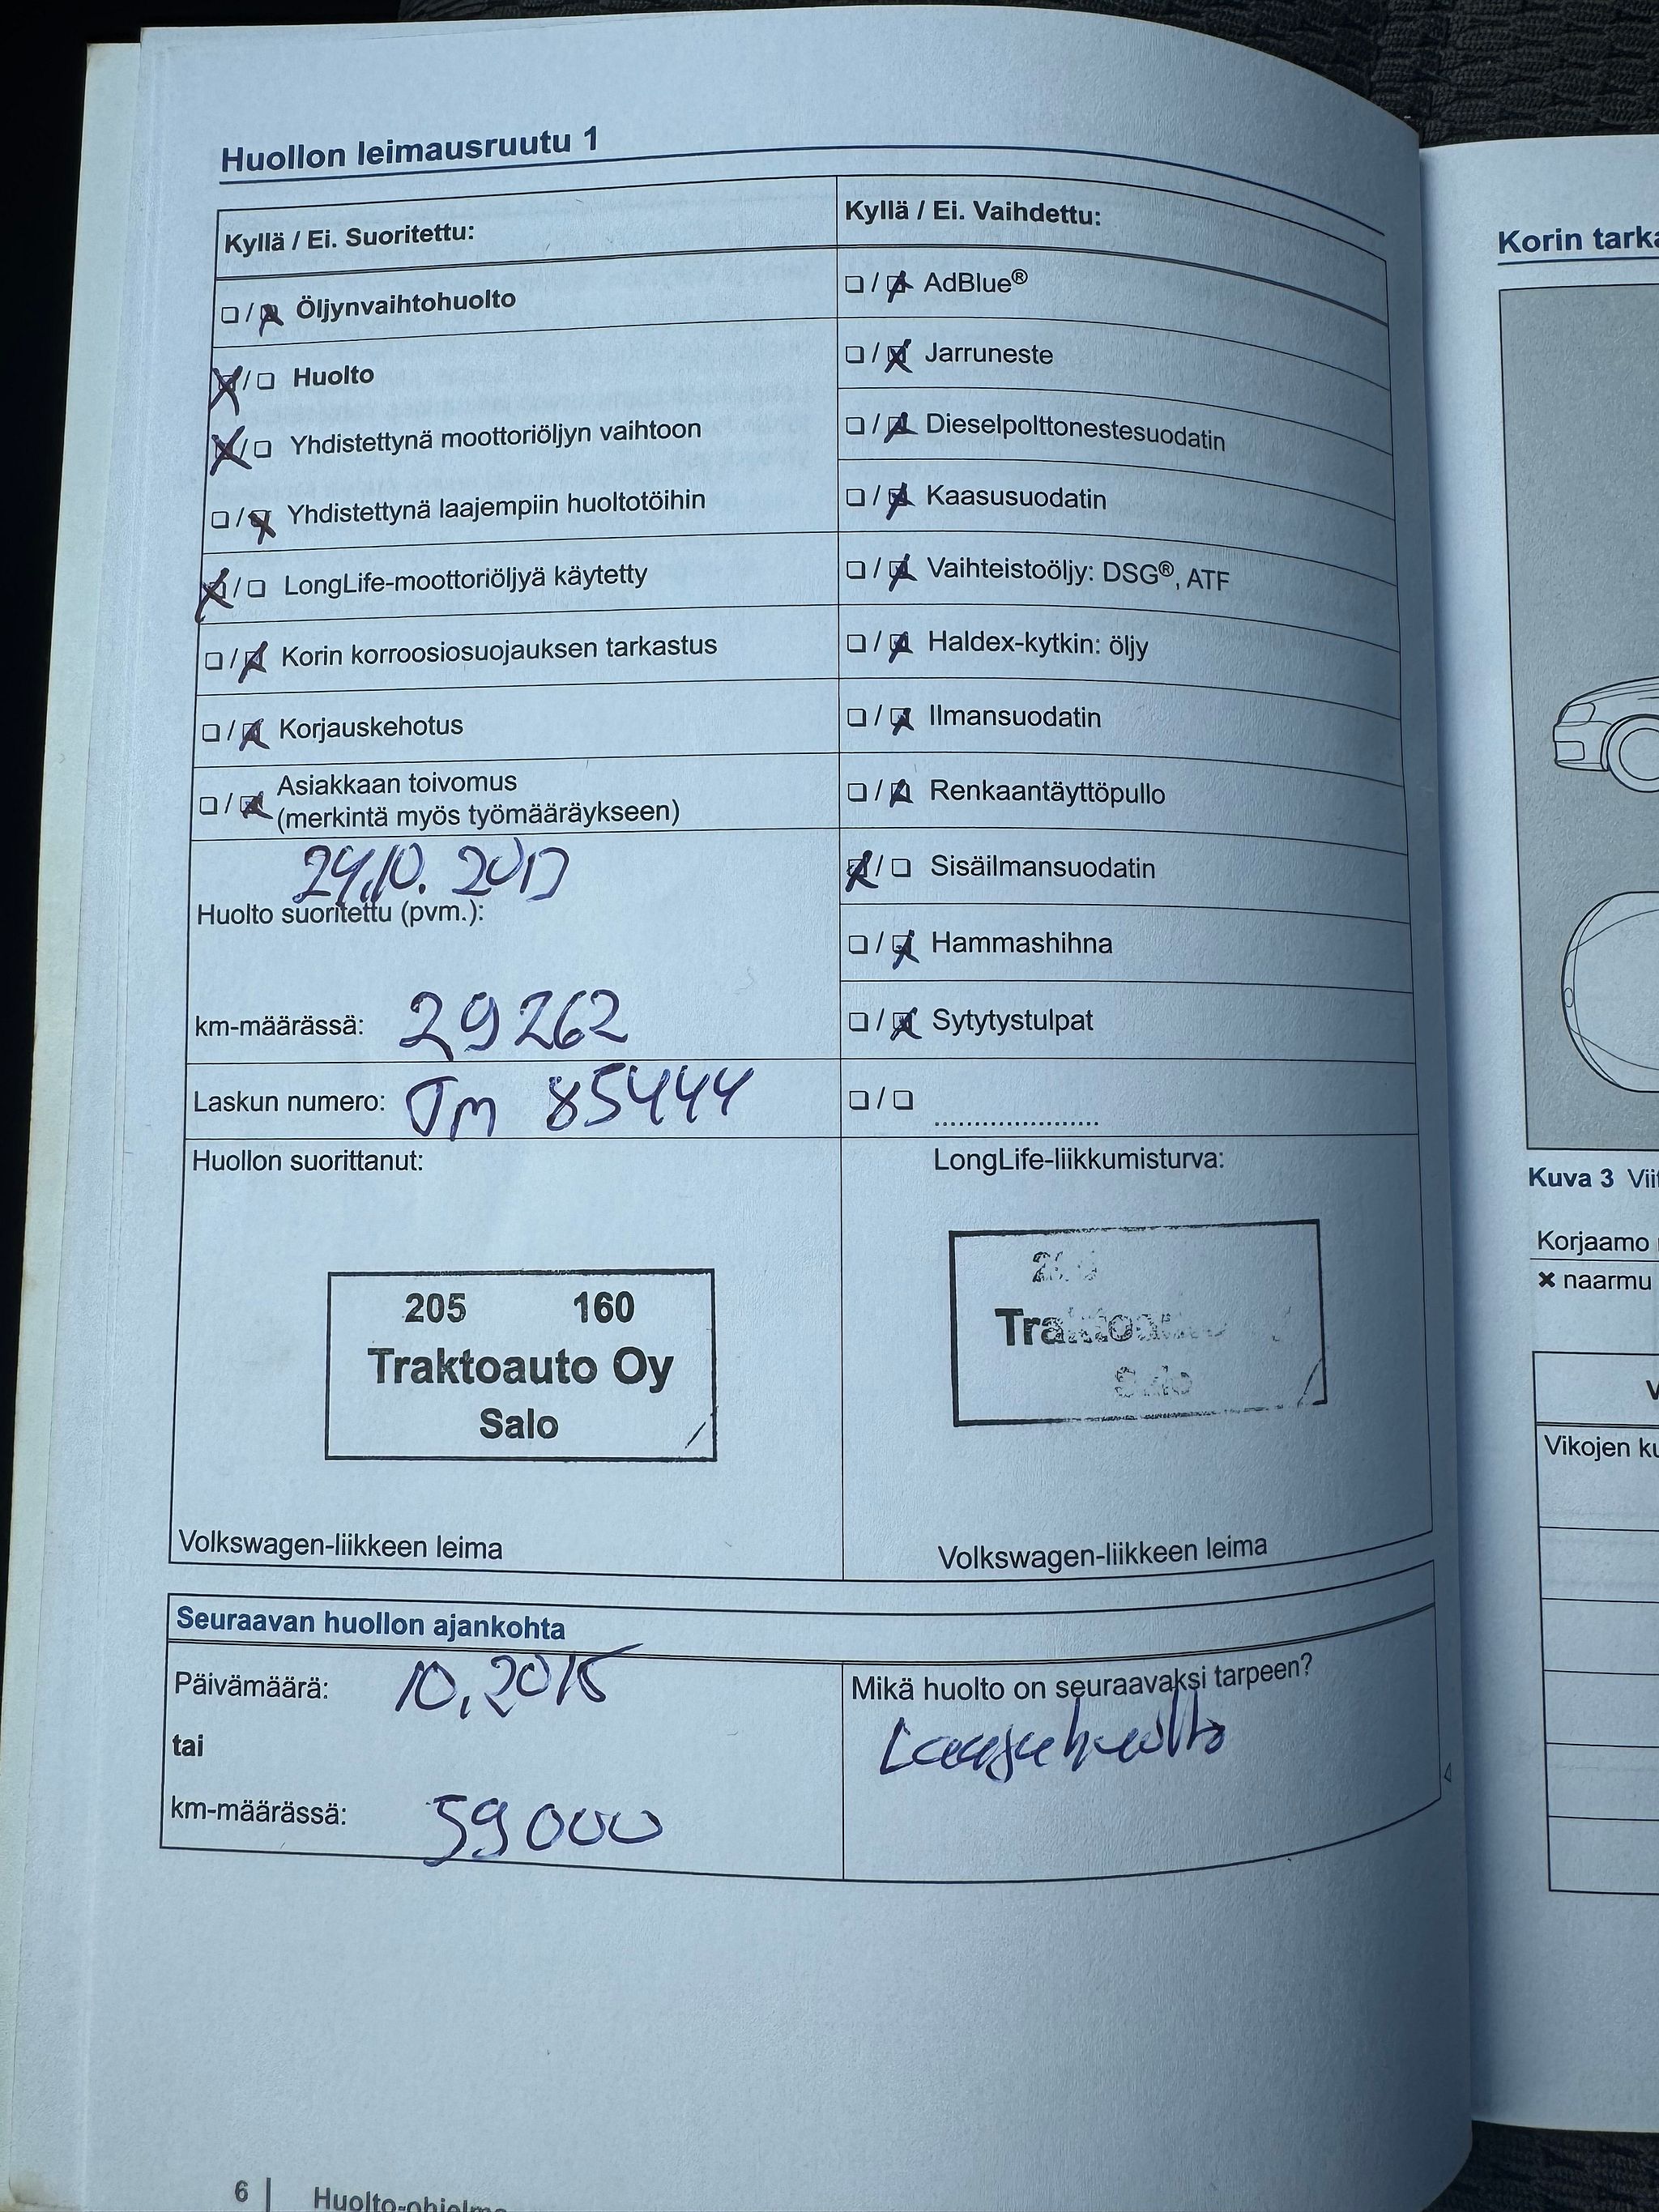 Huollon leimausruutu 1
Kyllä / Ei. Suoritettu:
Öljynvaihtohuolto
Huolto
Yhdistettynä moottoriöljyn vaihtoon
Yhdistettynä laajempiin huoltotöihin
LongLife-moottoriöljyä käytetty
Korin korroosiosuojauksen tarkastus
Korjauskehotus
Asiakkaan toivomus
(merkintä myös työmääräykseen)
24.10. 2017
Huolto suoritettu (pvm.):
km-määrässä: 29262
Laskun numero: Tm 85444
Kyllä / Ei. Vaihdettu:
AdBlue®
Jarruneste
Dieselpolttonestesuodatin
Kaasusuodatin
Vaihteistoöljy: DSG®, ATF
Haldex-kytkin: öljy
Ilmansuodatin
Renkaantäyttöpullo
Sisäilmansuodatin
Hammashihna
Sytytystulpat
Huollon suorittanut:
205 160
Traktoauto Oy
Salo
Volkswagen-liikkeen leima
LongLife-liikkumisturva:
Traktoauto
Salo
Volkswagen-liikkeen leima
Seuraavan huollon ajankohta
Päivämäärä: 10.2015
tai
km-määrässä: 59000
Mikä huolto on seuraavaksi tarpeen?
Laajahuolto
6 | Huolto-ohjelma
Korin
Kuva 3
Korjaamo
× naarmu
Vikojen